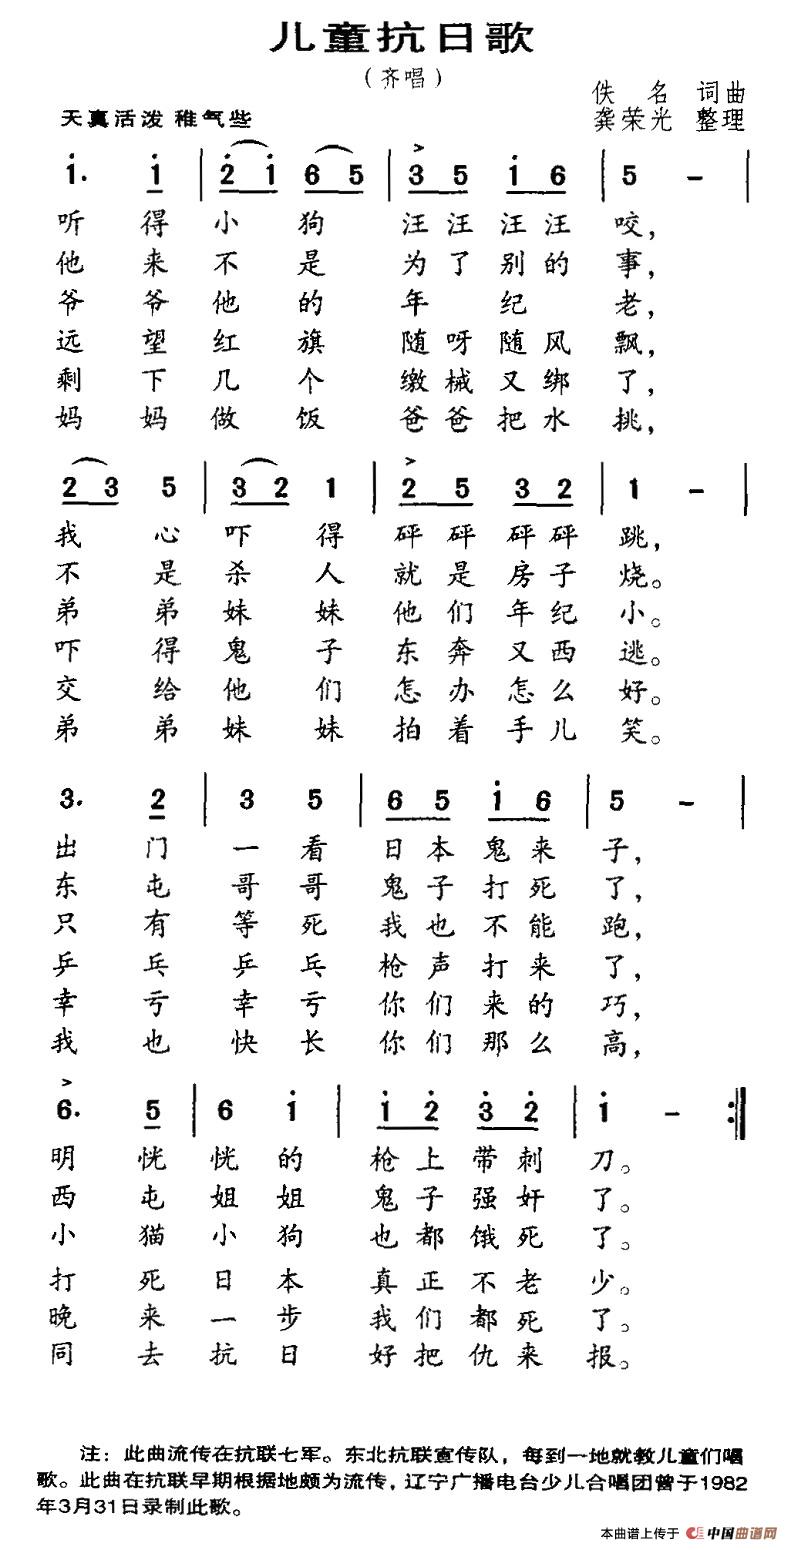 儿童抗日歌
（齐唱）
佚名 词曲
天真活泼 稚气些
龚荣光 整理
1. 1 | 2 1 6 5 | 3 5 1 6 | 5 - |
听得小狗汪汪汪汪咬，
他来不是为了别的事，
爷爷他的年纪老，
远望红旗随呀随风飘，
剩下几个缴械又绑了，
妈妈做饭爸爸把水挑，
2 3 5 | 3 2 1 | 2 5 3 2 | 1 - |
我心吓得砰砰砰砰跳，
不是杀人就是房子烧。
弟弟妹妹他们年纪小。
吓得鬼子东奔又西逃。
交给他们怎办怎么好。
弟弟妹妹拍着手儿笑。
3. 2 | 3 5 | 6 5 1 6 | 5 - |
出门一看日本鬼来子，
东屯哥哥鬼子打死了，
只有等死我也不能跑，
乒乓乒乓枪声打来了，
幸亏幸亏你们来的巧，
我也快长你们那么高，
6. 5 | 6 1 | 1 2 3 2 | 1 - :|
明恍恍的枪上带刺刀。
西屯姐姐鬼子强奸了。
小猫小狗也都饿死了。
打死日本真正不老少。
晚来一步我们都死了。
同去抗日好把仇来报。
注：此曲流传在抗联七军。东北抗联宣传队，每到一地就教儿童们唱
歌。此曲在抗联早期根据地颇为流传，辽宁广播电台少儿合唱团曾于1982
年3月31日录制此歌。
本曲谱上传于 中国曲谱网